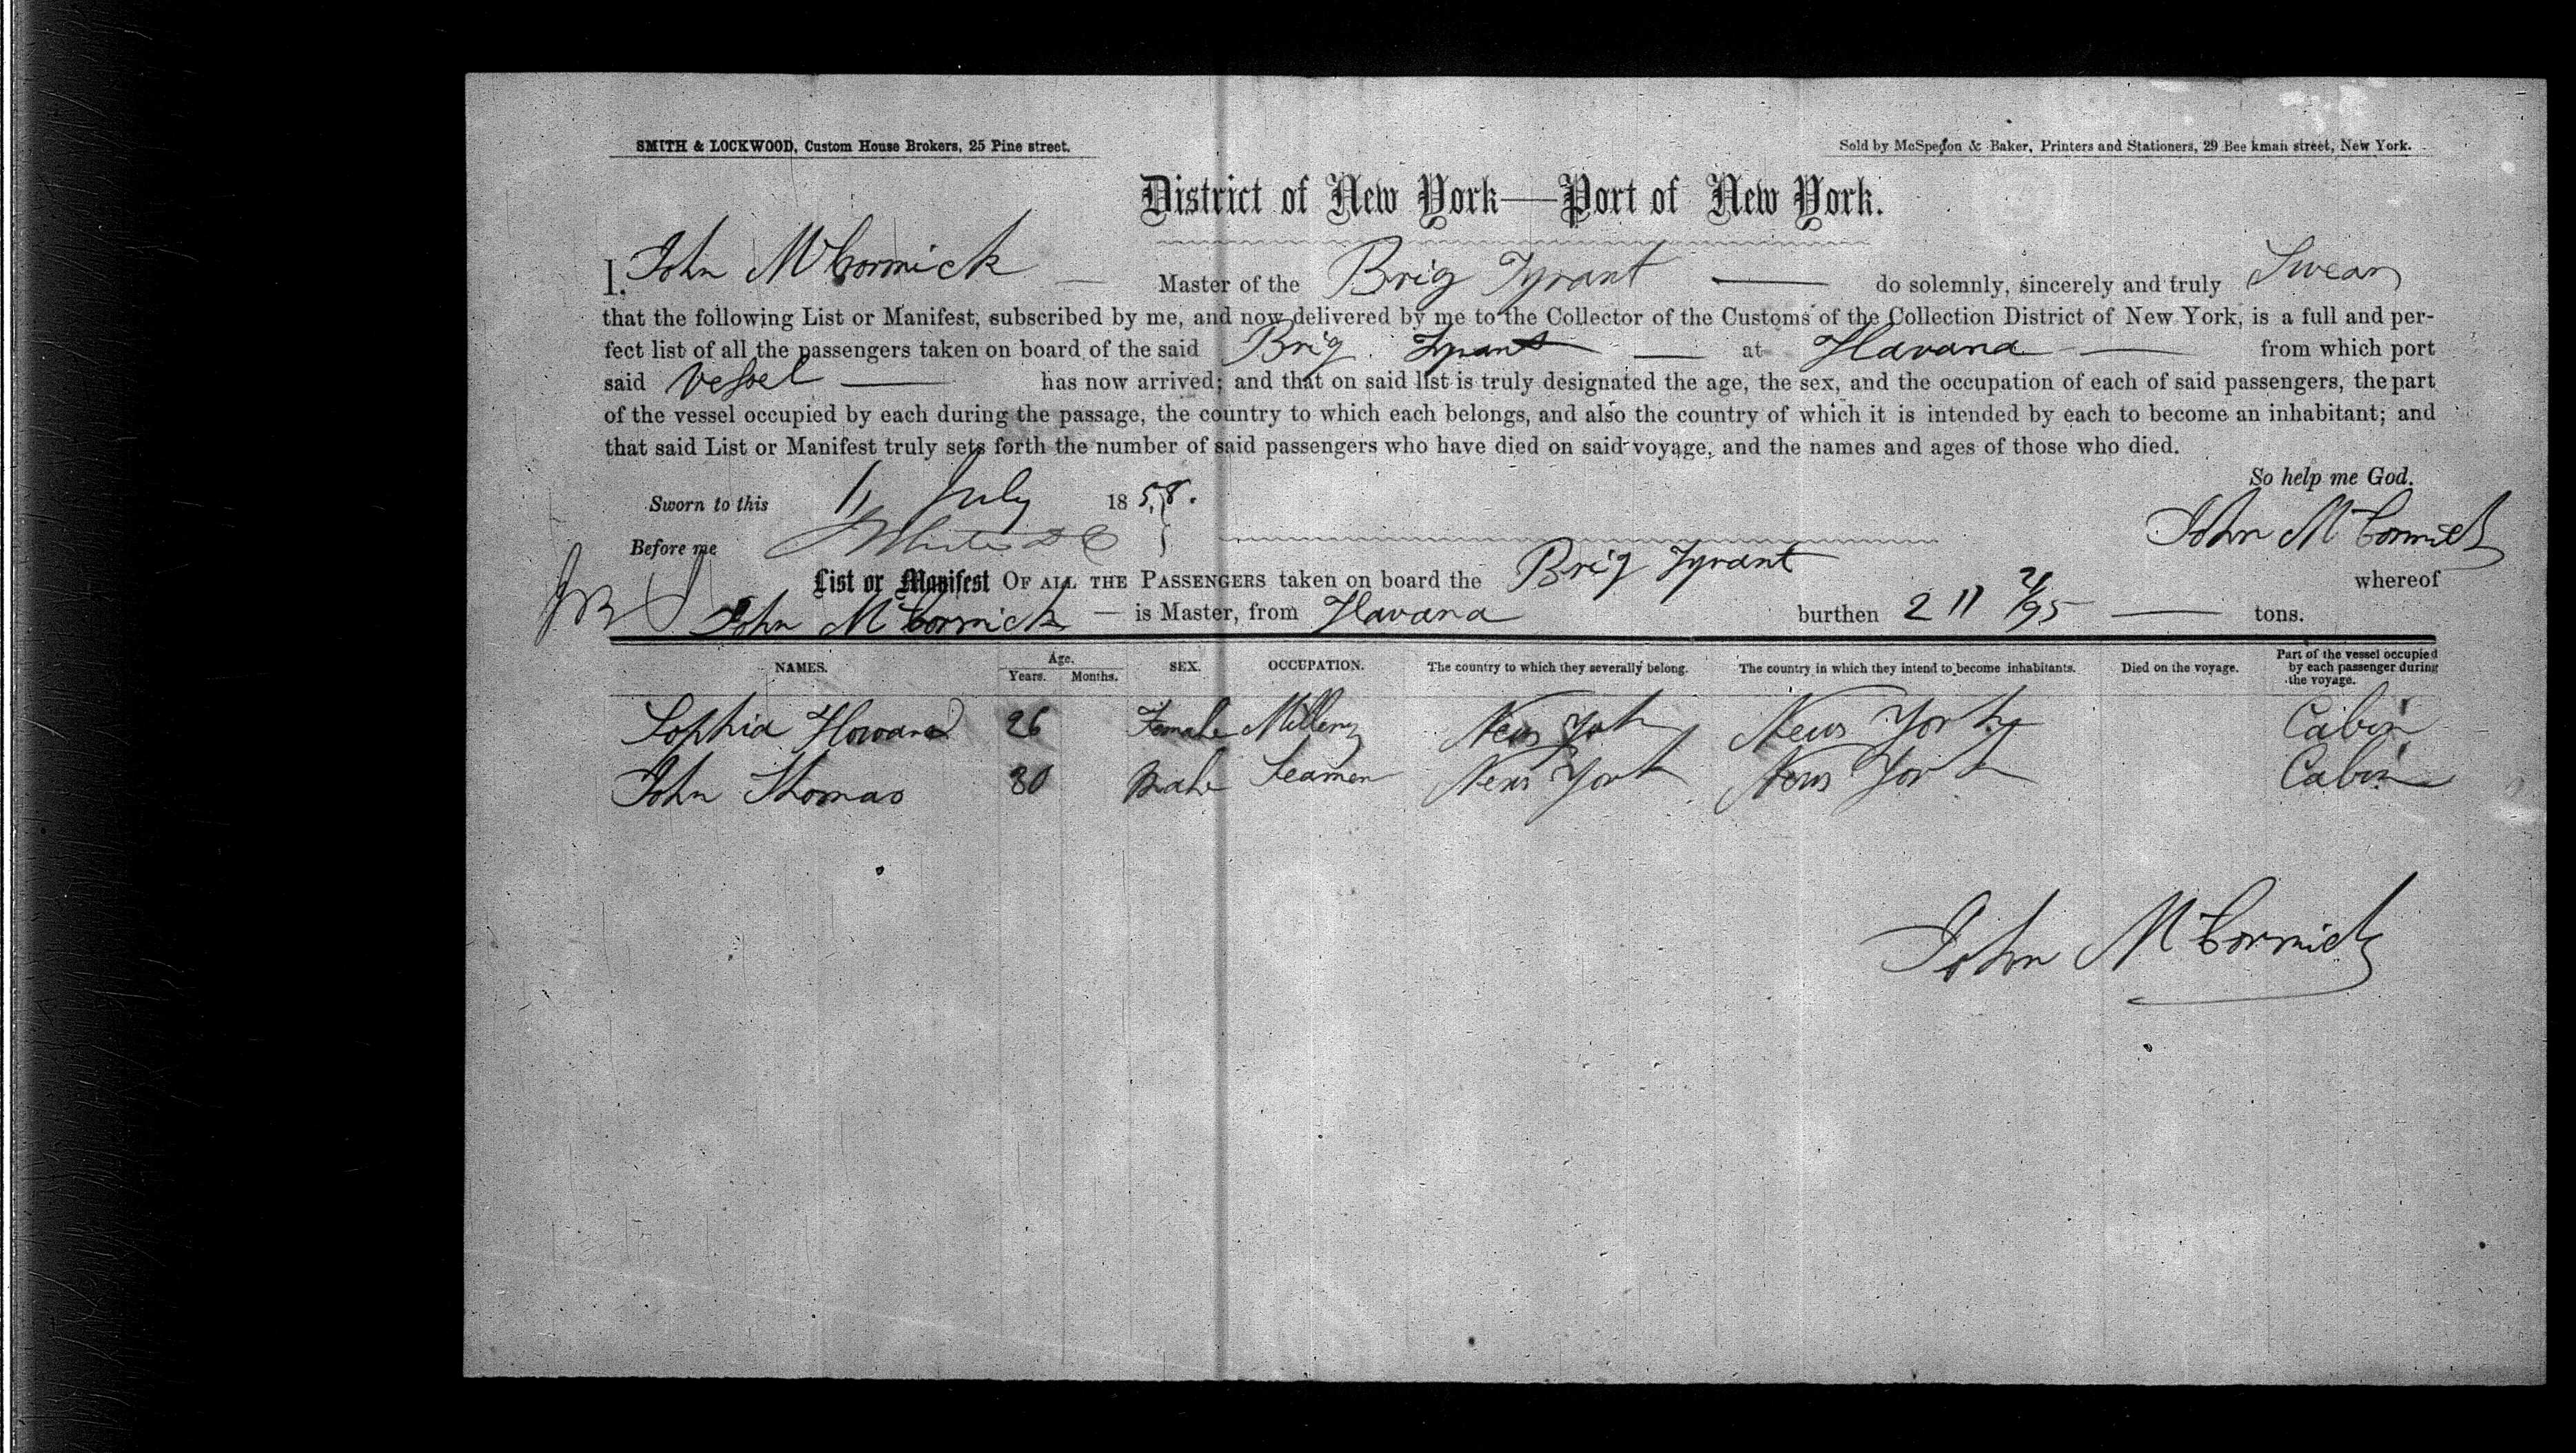 SMITH & LOCKWOOD, Custom House Brokers, 25 Pine street.
Sold by McSpedon & Baker, Printers and Stationers, 29 Beekman street, New York.
District of New York—Port of New York.
I, John McCormick — Master of the Brig Tyrant — do solemnly, sincerely and truly Swear
that the following List or Manifest, subscribed by me, and now delivered by me to the Collector of the Customs of the Collection District of New York, is a full and per-
fect list of all the passengers taken on board of the said Brig Tyrant — at Havana — from which port
said Vessel — has now arrived; and that on said list is truly designated the age, the sex, and the occupation of each of said passengers, the part
of the vessel occupied by each during the passage, the country to which each belongs, and also the country of which it is intended by each to become an inhabitant; and
that said List or Manifest truly sets forth the number of said passengers who have died on said voyage, and the names and ages of those who died.
So help me God.
Sworn to this 1, July 1858.
John McCormick
Before me
List or Manifest OF ALL THE PASSENGERS taken on board the Brig Tyrant whereof
John McCormick — is Master, from Havana burthen 211 2/95 — tons.
NAMES. Age. Years. Months. SEX. OCCUPATION. The country to which they severally belong. The country in which they intend to become inhabitants. Died on the voyage. Part of the vessel occupied by each passenger during the voyage.
Sophia Howard 26 Female Millery New York New York Cabin
John Thomas 30 Male Seamen New York New York Cabin
John McCormick